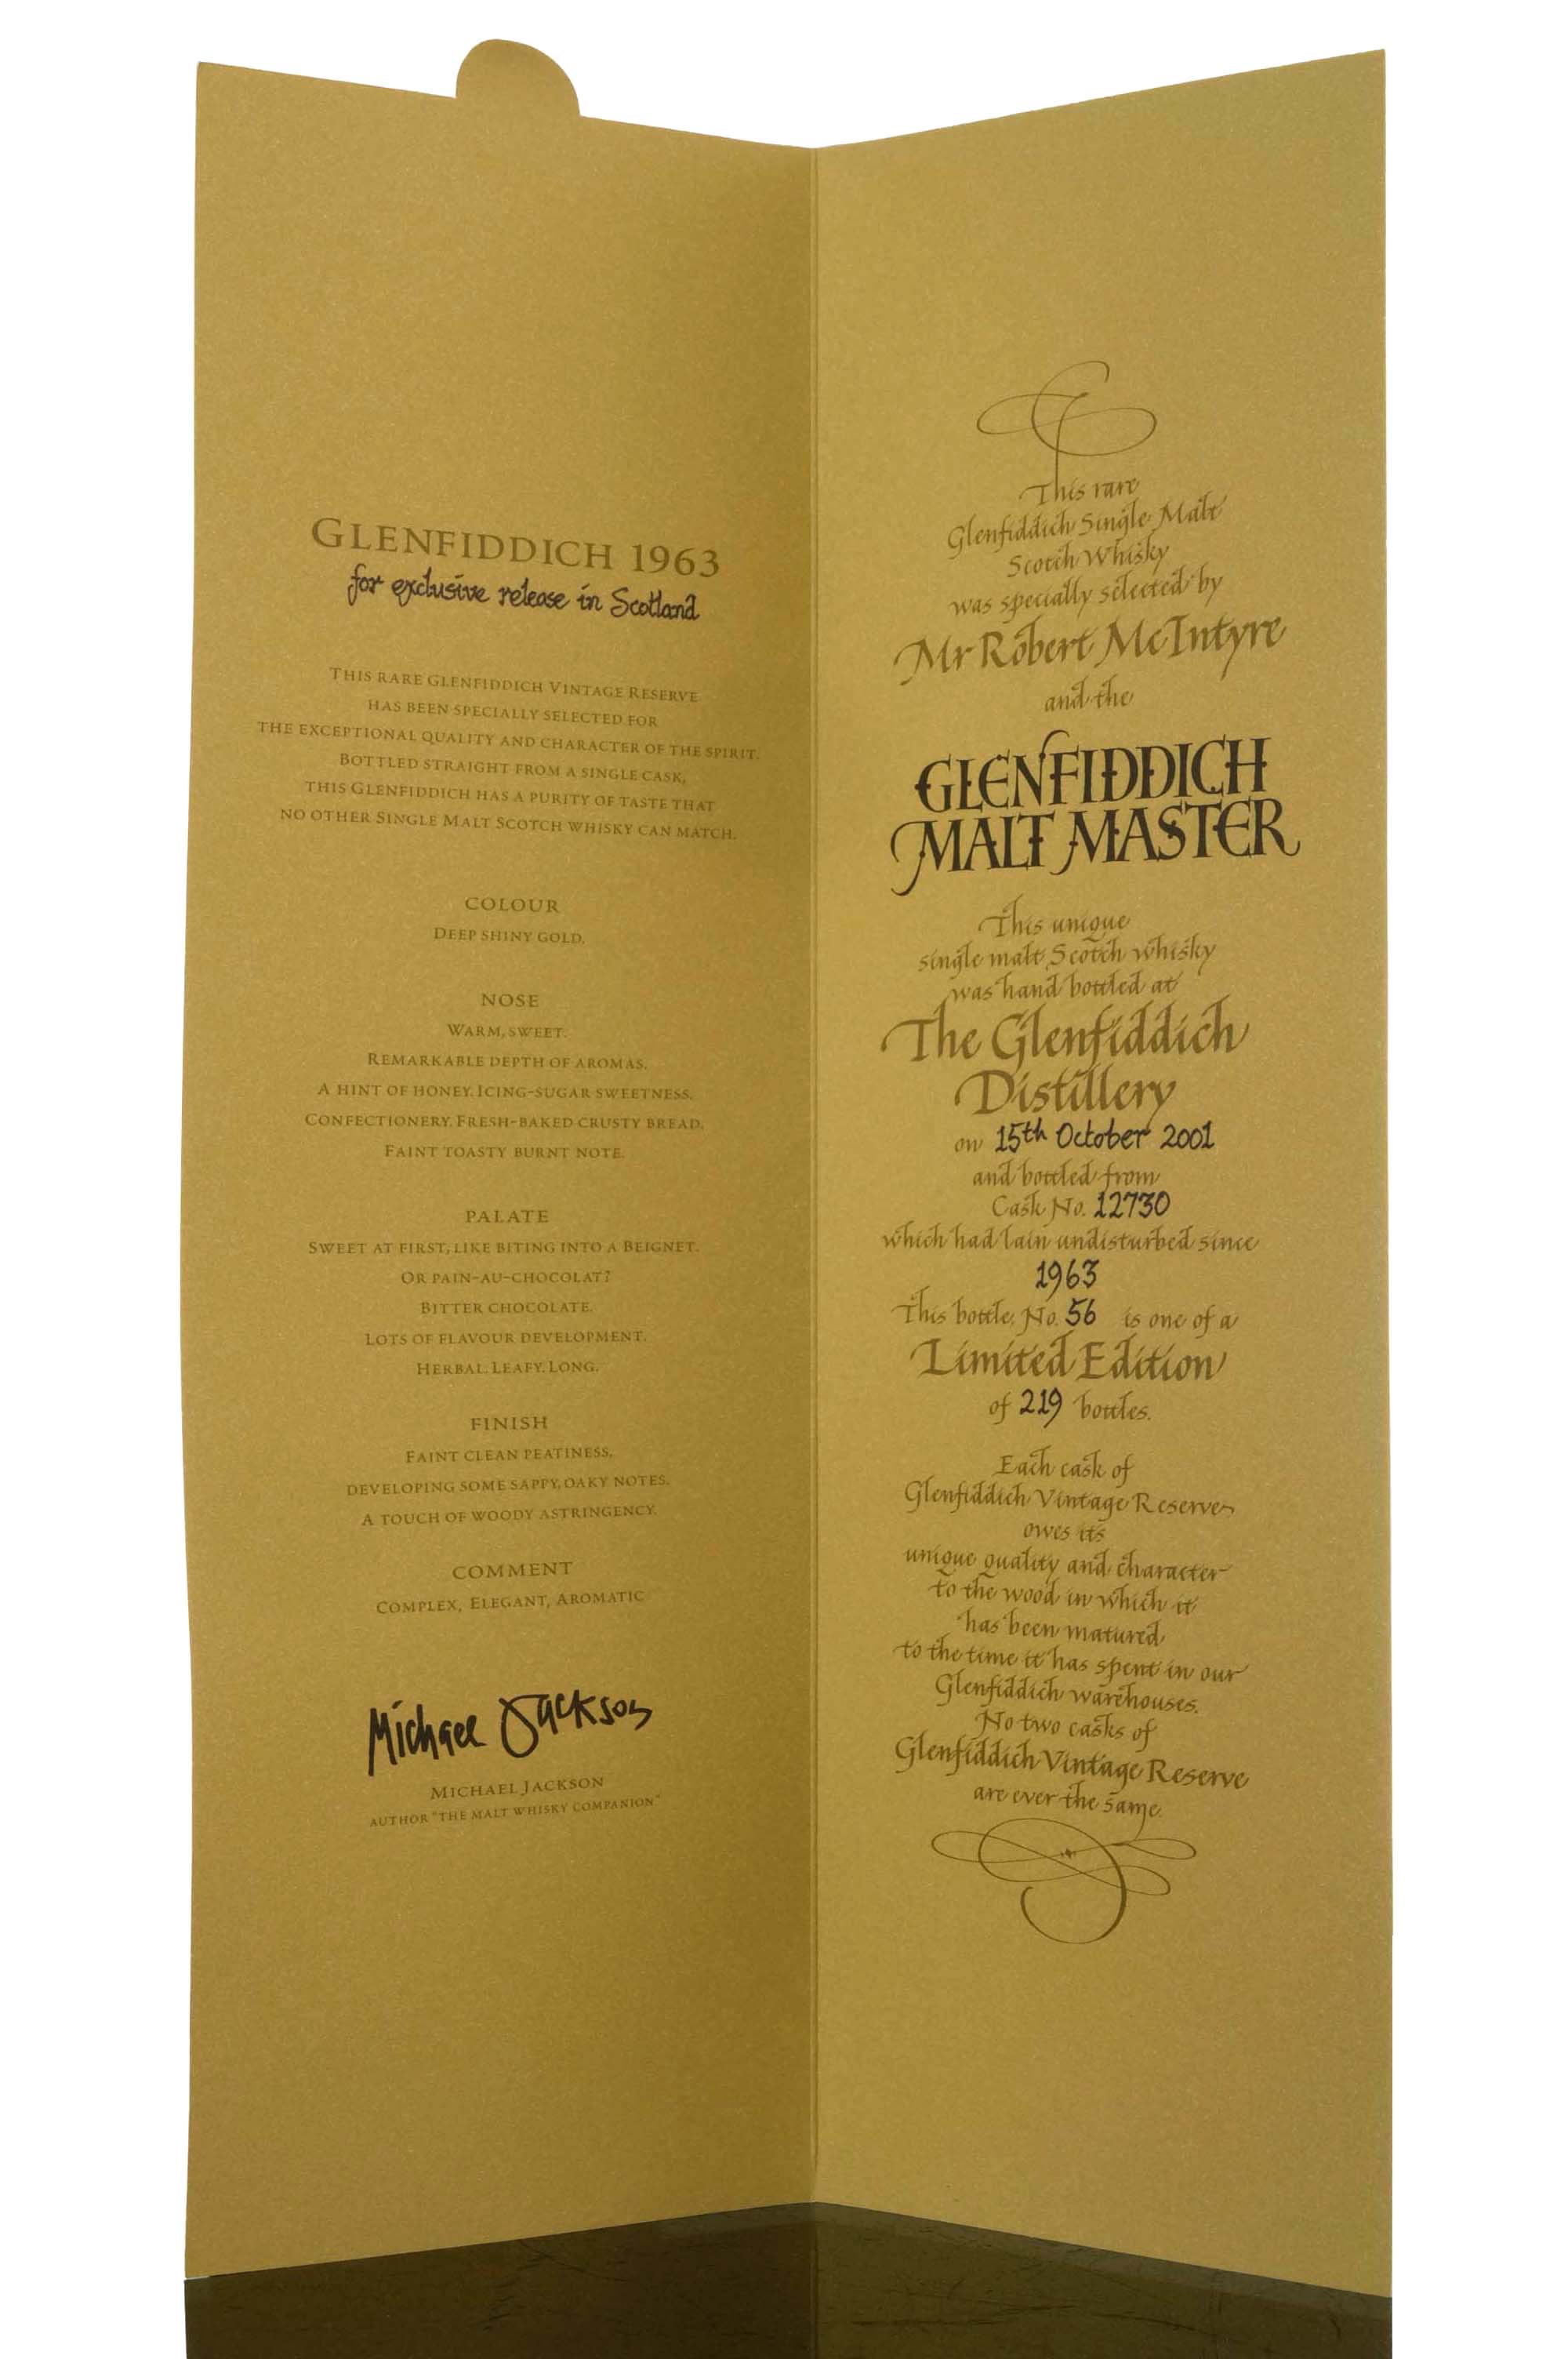 GLENFIDDICH 1963
for exclusive release in Scotland
THIS RARE GLENFIDDICH VINTAGE RESERVE
HAS BEEN SPECIALLY SELECTED FOR
THE EXCEPTIONAL QUALITY AND CHARACTER OF THE SPIRIT.
BOTTLED STRAIGHT FROM A SINGLE CASK,
THIS GLENFIDDICH HAS A PURITY OF TASTE THAT
NO OTHER SINGLE MALT SCOTCH WHISKY CAN MATCH.
COLOUR
DEEP SHINY GOLD.
NOSE
WARM, SWEET.
REMARKABLE DEPTH OF AROMAS.
A HINT OF HONEY. ICING-SUGAR SWEETNESS.
CONFECTIONERY. FRESH-BAKED CRUSTY BREAD.
FAINT TOASTY BURNT NOTE.
PALATE
SWEET AT FIRST, LIKE BITING INTO A BEIGNET.
OR PAIN-AU-CHOCOLAT?
BITTER CHOCOLATE.
LOTS OF FLAVOUR DEVELOPMENT.
HERBAL. LEAFY. LONG.
FINISH
FAINT CLEAN PEATINESS,
DEVELOPING SOME SAPPY, OAKY NOTES.
A TOUCH OF WOODY ASTRINGENCY.
COMMENT
COMPLEX, ELEGANT, AROMATIC
Michael Jackson
MICHAEL JACKSON
AUTHOR "THE MALT WHISKY COMPANION"
This rare
Glenfiddich Single Malt
Scotch Whisky
was specially selected by
Mr Robert McIntyre
and the
GLENFIDDICH
MALT MASTER
This unique
single malt Scotch whisky
was hand bottled at
The Glenfiddich
Distillery
on 15th October 2001
and bottled from
Cask No. 12730
which had lain undisturbed since
1963
This bottle, No. 56 is one of a
Limited Edition
of 219 bottles.
Each cask of
Glenfiddich Vintage Reserve
owes its
unique quality and character
to the wood in which it
has been matured
to the time it has spent in our
Glenfiddich warehouses.
No two casks of
Glenfiddich Vintage Reserve
are ever the same.